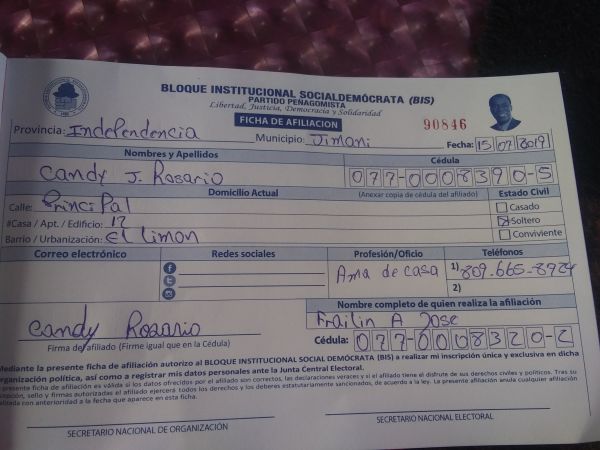 BLOQUE INSTITUCIONAL SOCIALDEMÓCRATA (BIS)
PARTIDO PEÑAGOMISTA
Libertad, Justicia, Democracia y Solidaridad
FICHA DE AFILIACION
90846
Provincia: Independencia Municipio: Jimani Fecha: 15/07/2019
Nombres y Apellidos Cédula
Candy J. Rosario 077-0008390-5
Domicilio Actual (Anexar copia de cédula del afiliado) Estado Civil
Calle: Principal Casado
#Casa / Apt. / Edificio: 17 Soltero
Barrio / Urbanización: El limon Conviviente
Correo electrónico Redes sociales Profesión/Oficio Teléfonos
Ama de casa 1) 809-665-8924
2)
Nombre completo de quien realiza la afiliación
Candy Rosario Frailin A Jose
Firma de afiliado (Firme igual que en la Cédula) Cédula: 077-0008320-2
Mediante la presente ficha de afiliación autorizo al BLOQUE INSTITUCIONAL SOCIAL DEMÓCRATA (BIS) a realizar mi inscripción única y exclusiva en dicha
organización política, así como a registrar mis datos personales ante la Junta Central Electoral.
presente ficha de afiliación es válida si los datos ofrecidos por el afiliado son correctos, las declaraciones veraces y si el afiliado tiene el disfrute de sus derechos civiles y políticos. Tras su
sello y firmas autorizadas el afiliado ejercerá todos los derechos y los deberes estatutariamente sancionados, de acuerdo a la ley. La presente afiliación anula cualquier afiliación
con anterioridad a la fecha que aparece en esta ficha.
SECRETARIO NACIONAL DE ORGANIZACIÓN SECRETARIO NACIONAL ELECTORAL